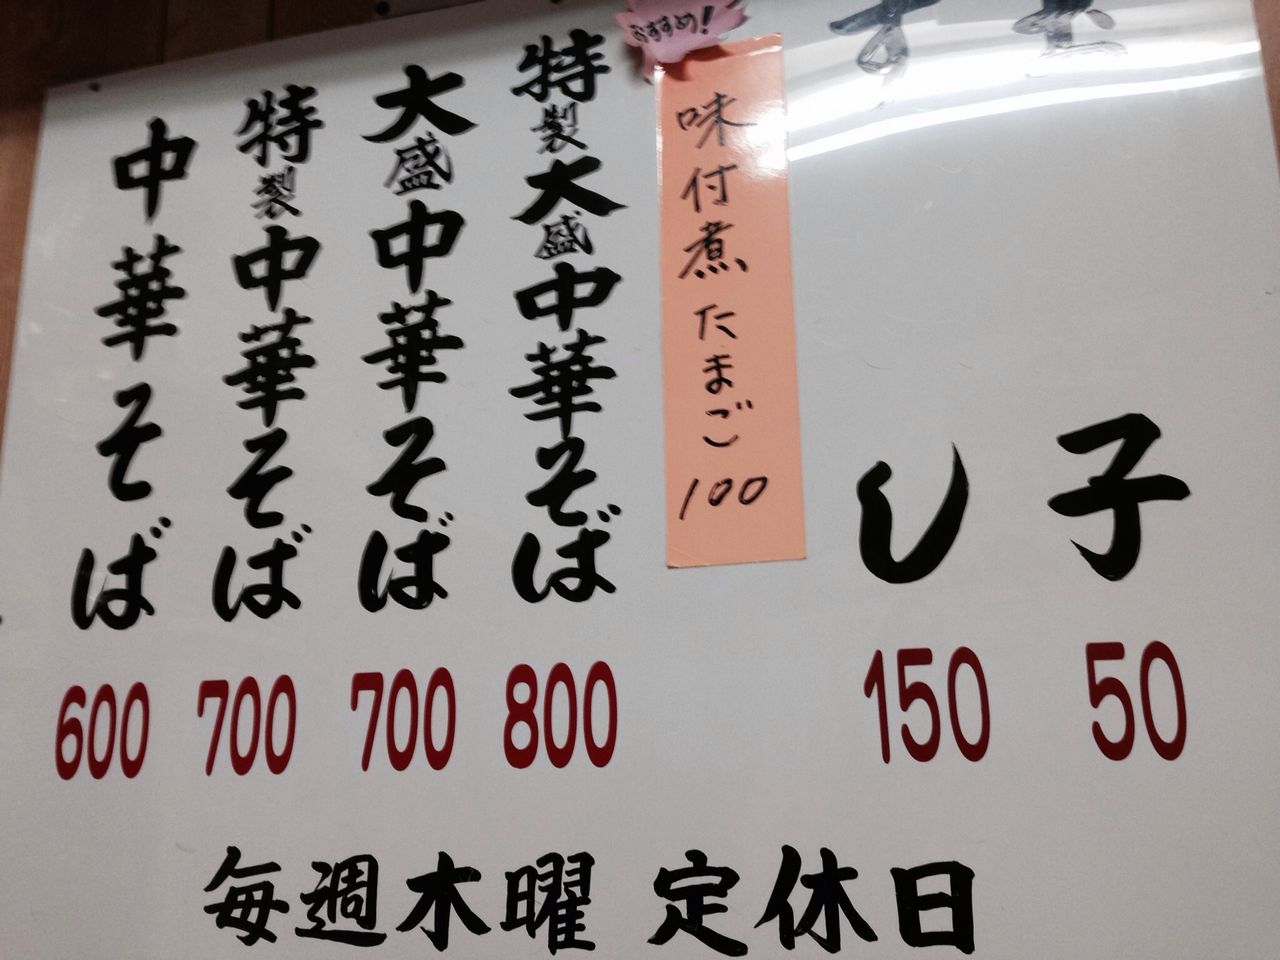 玉子
50
すし
150
おすすめ!
味付煮たまご
100
特製大盛中華そば
800
大盛中華そば
700
特製中華そば
700
中華そば
600
毎週木曜 定休日